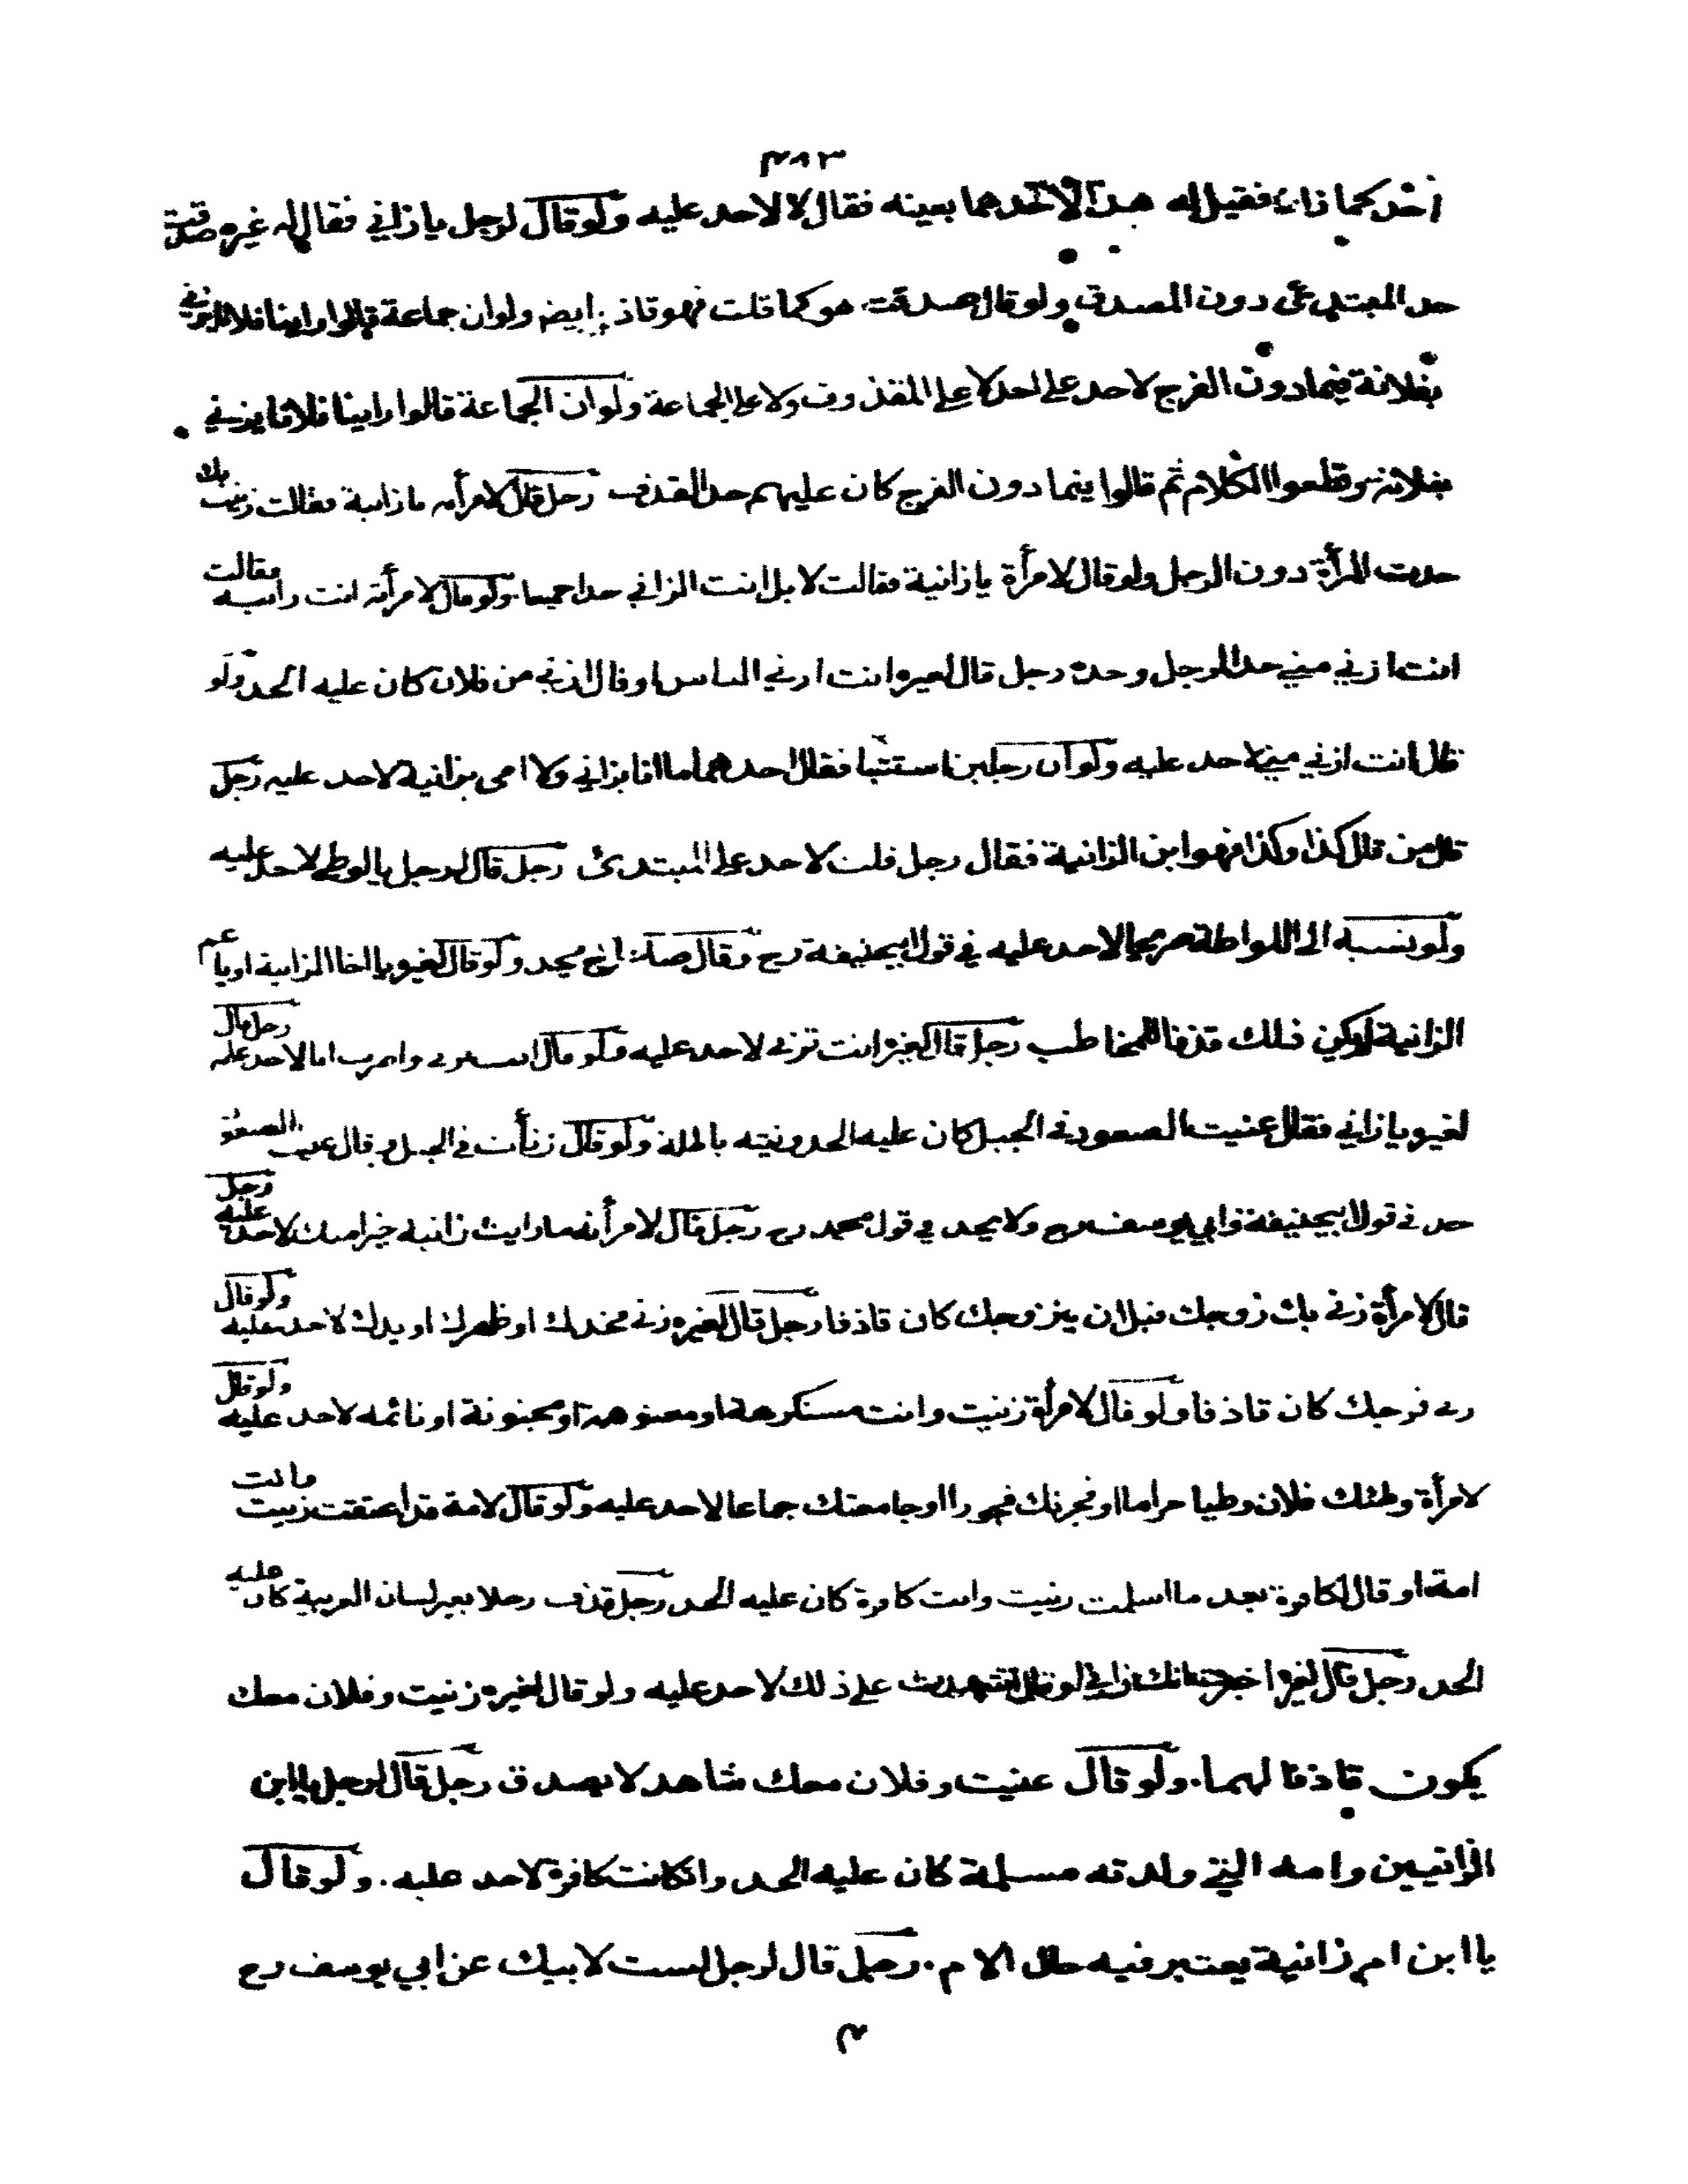 ٤٨٣
احدكما زان فقيل له هذا لاحدهما بعينه فقال لا لاحد عليه ولو قال لرجل يا زاني فقال له غيره صدقت
حد المبتدئ دون المصدق ولو قال صدقت هو كما قلت فهو قاذف ايضا ولو ان جماعة قالوا راينا فلانا يزني
بفلانة فيما دون الفرج لا حد على احد لا على المقذوف ولا على الجماعة ولو ان الجماعة قالوا راينا فلانا يزني
بفلانة وقطعوا الكلام ثم قالوا فيما دون الفرج كان عليهم حد القذف رجل قال لامرأته يا زانية فقالت زنيت بك
حدت المرأة دون الرجل ولو قال لامرأة يا زانية فقالت لا بل انت الزاني حدا جميعا ولو قال لامرأته انت زانية فقالت
انت ازني مني حد الرجل وحده رجل قال لغيره انت ازني الناس او قال ازني من فلان كان عليه الحد ولو
قال انت ازني مني لا حد عليه ولو ان رجلين استبا فقال احدهما ما انا بزاني ولا امي بزانية لا حد عليه رجل
قال من قال كذا وكذا فهو ابن الزانية فقال رجل قلت لا حد على المبتدئ رجل قال لرجل يا لوطي لا حد عليه
ولو نسبه الى اللواطة صريحا لا حد عليه في قول ابيحنيفة رح وقال صاحباه يحد ولو قال لغيره يا اخا الزانية او يا عم
الزانية لم يكن ذلك قذفا للمخاطب رجل قال لغيره انت تزني لا حد عليه ولو قال انت تزني واضرب انا لا حد عليه رجل قال
لغيره يا زاني فقال عنيت الصعود في الجبل كان عليه الحد ونيته باطلة ولو قال زنأت في الجبل وقال عنيت الصعود
حد في قول ابيحنيفة وابي يوسف رح ولا يحد في قول محمد رح رجل قال لامرأته ما رايت زانية خيرا منك لا حد عليه رجل
قال لامرأة زنى بك زوجك قبل ان يتزوجك كان قاذفا رجل قال لغيره زنى فخذك او ظهرك او يدك لا حد عليه ولو قال
زنى فرجك كان قاذفا ولو قال لامرأة زنيت وانت مستكرهة او معتوهة او مجنونة او نائمة لا حد عليه ولو قال
لامرأة وطئك فلان وطيا حراما او فجر بك فجورا او جامعك جماعا لا حد عليه ولو قال لامة قد اعتقت زنيت وانت
امة او قال لكافرة بعد ما اسلمت زنيت وانت كافرة كان عليه الحد رجل قذف رجلا بغير لسان العربية كان عليه
الحد رجل قال لغيره اخبرت انك زاني او قال اشهدت على ذلك لا حد عليه ولو قال لغيره زنيت وفلان معك
يكون قاذفا لهما. ولو قال عنيت وفلان معك شاهد لا يصدق رجل قال لرجل يا ابن
الزانيين وامه التي ولدته مسلمة كان عليه الحد وان كانت كافرة لا حد عليه. ولو قال
يا ابن ام زانية يعتبر فيه حال الام. رجل قال لرجل لست لابيك عن ابي يوسف رح